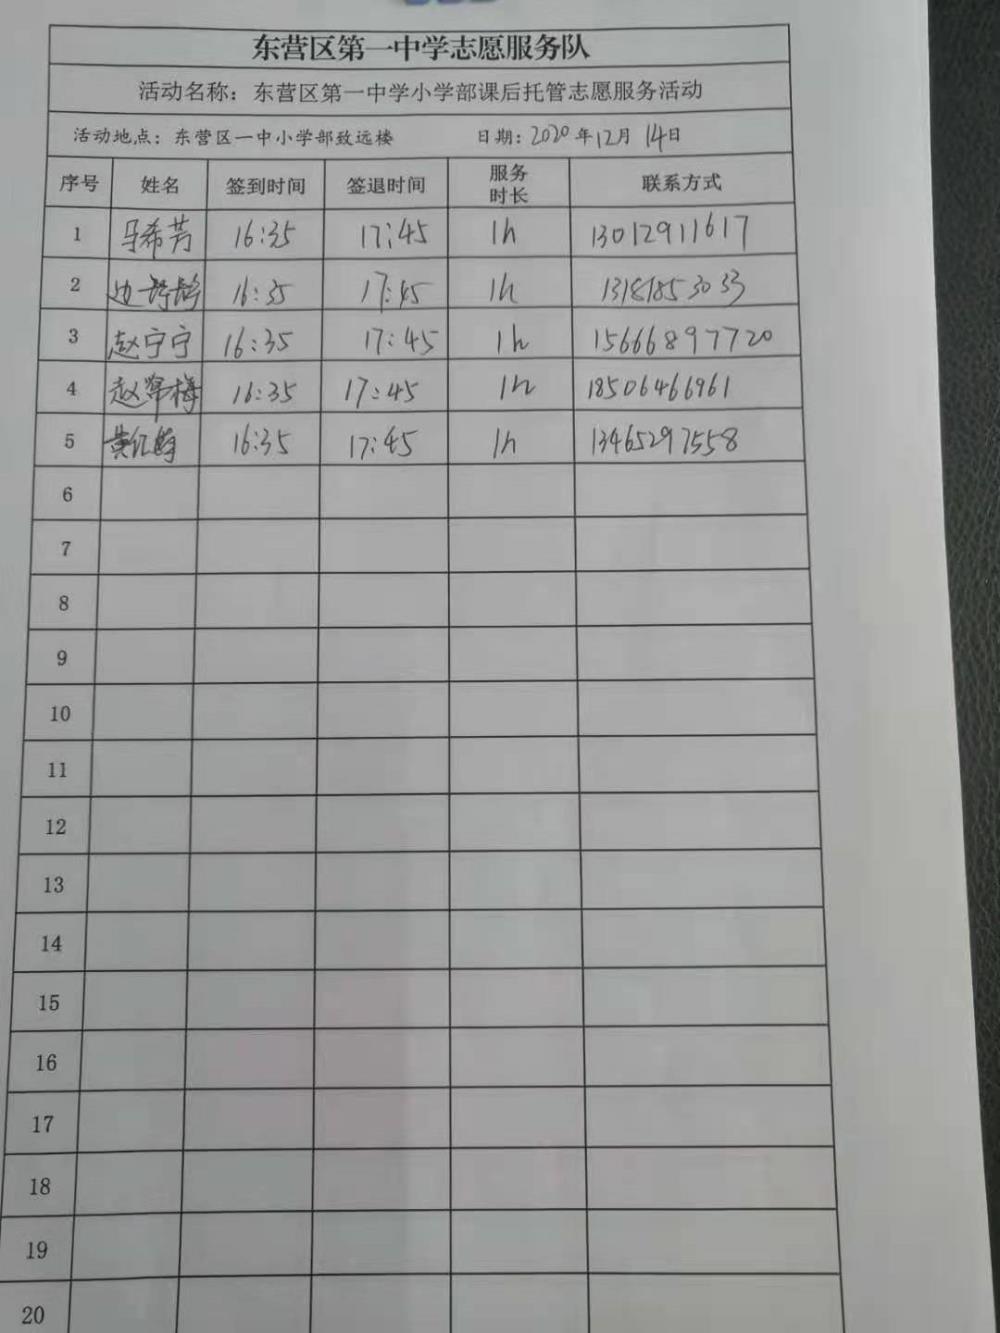 东营区第一中学志愿服务队
活动名称：东营区第一中学小学部课后托管志愿服务活动
活动地点：东营区一中小学部致远楼 日期：2020年12月14日
序号 姓名 签到时间 签退时间 服务时长 联系方式
1 马希芳 16:35 17:45 1h 13012911617
2 边 16:35 17:45 1h 13181853033
3 赵宁宁 16:35 17:45 1h 15666897720
4 赵 梅 16:35 17:45 1h 18506466961
5 黄红 16:35 17:45 1h 13465297558
6
7
8
9
10
11
12
13
14
15
16
17
18
19
20